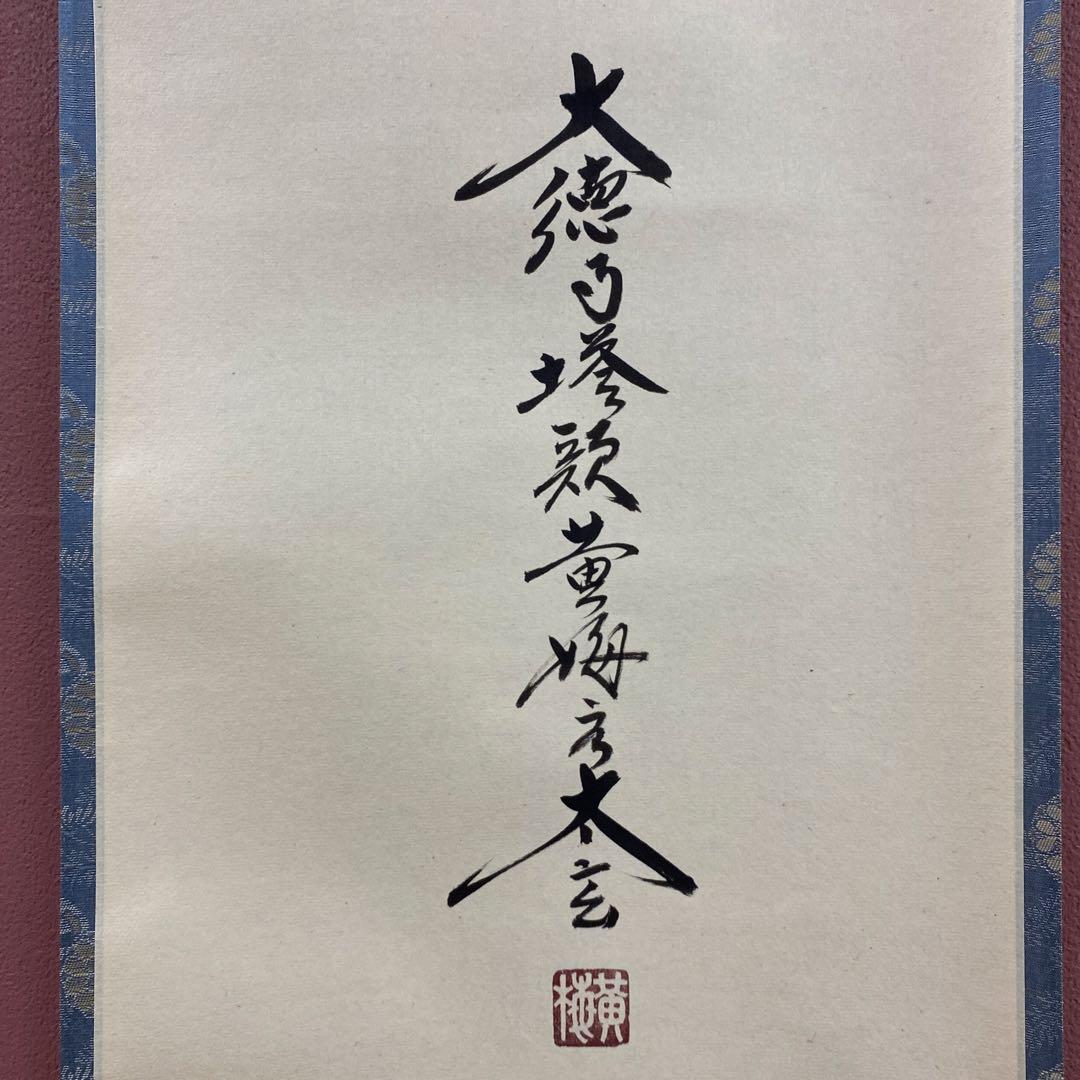 大徳寺塔頭黄梅院太玄
黄梅